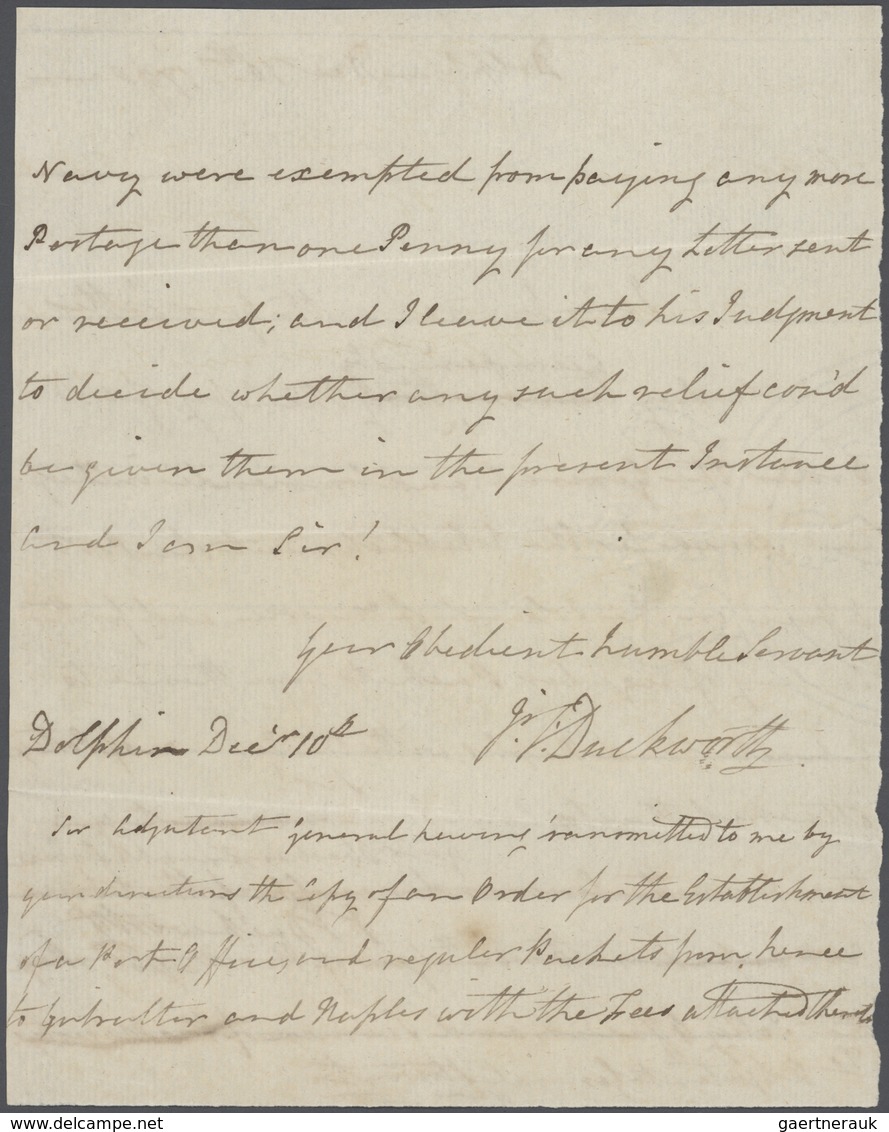 Navy were exempted from paying any more
Postage than one Penny for any Letter sent
or received; and I leave it to his Judgment
to decide whether any such relief cou'd
be given them in the present Instance
and I am Sir!
Your Obedient humble Servant
Dolphin Decr. 10th
J. T. Duckworth
Sir Adjutant General having transmitted to me by
your directions the Copy of an Order for the Establishment
of a Post Office, and regular Packets from hence
to Gibralter and Naples with the Fees attached thereto
gaertnerauk